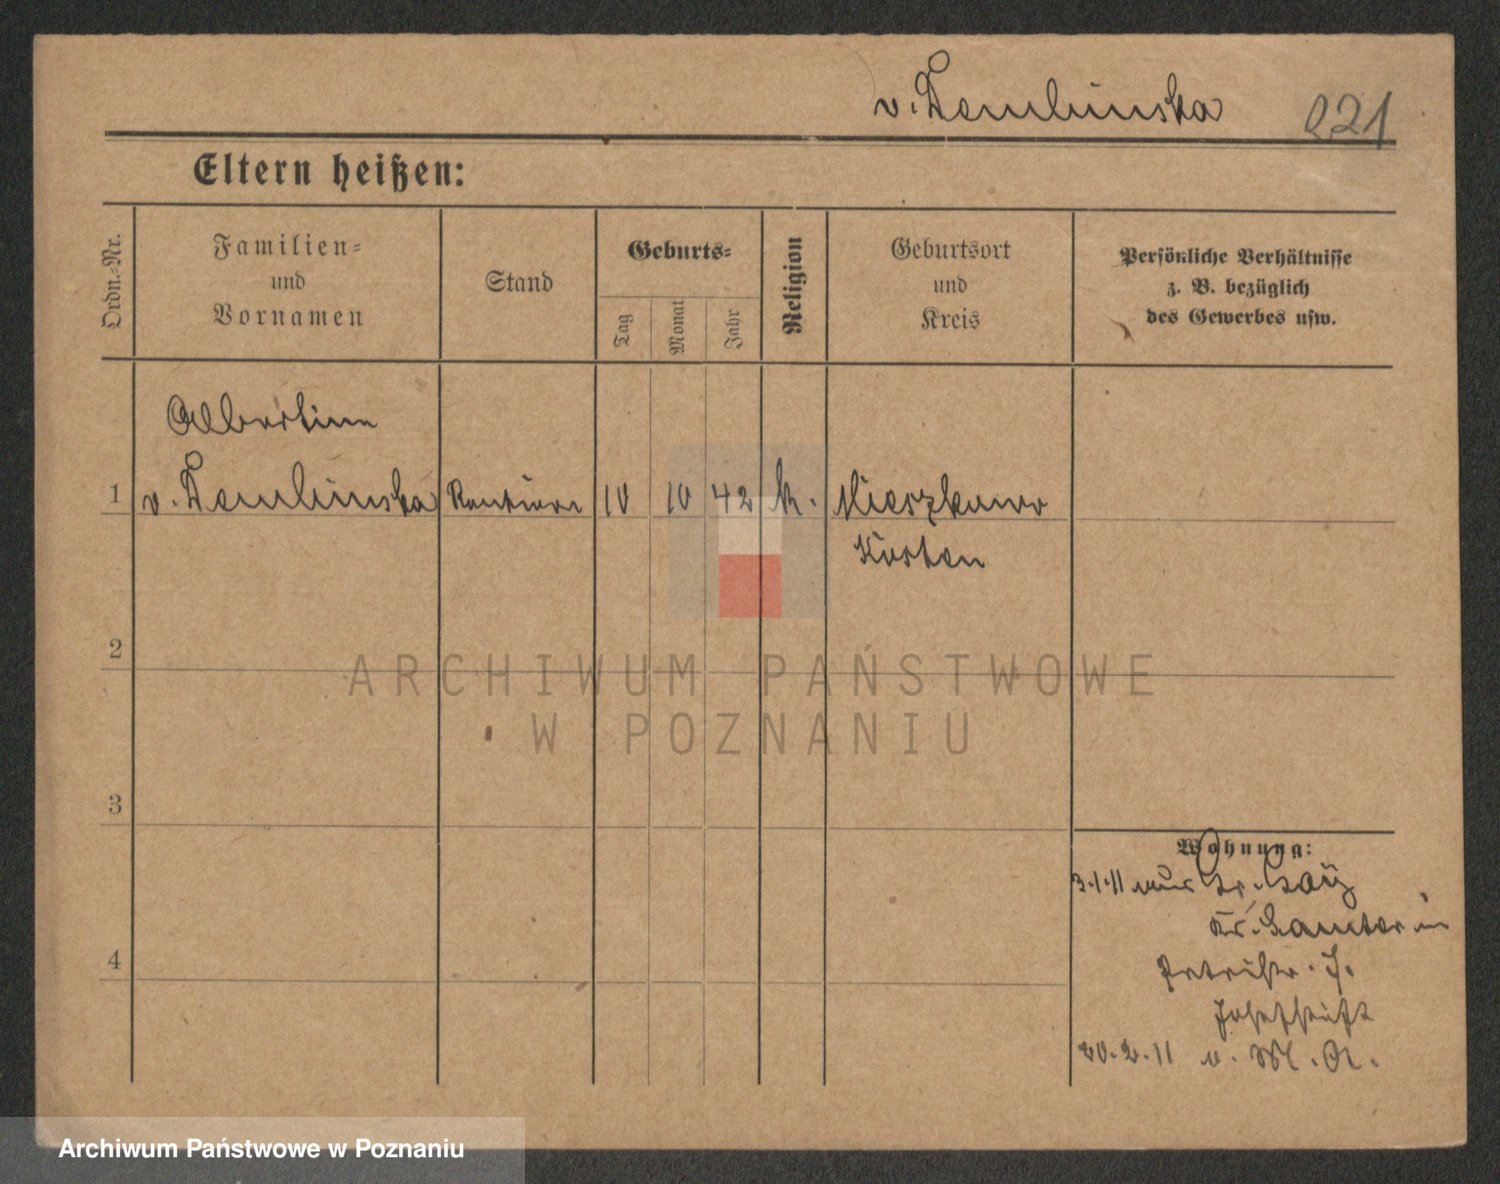 v. Dembinska 221
Eltern heißen:
Ordn.-Nr.
Familien-
und
Vornamen
Stand
Geburts-
Tag
Monat
Jahr
Religion
Geburtsort
und
Kreis
Persönliche Verhältnisse
z. B. bezüglich
des Gewerbes usw.
Albertine
1 v. Dembinska Rentiere 10 10 42 k.
Kosten
2
3
4
Wohnung:
3.1.11 aus
Kr.
Petristr. 7.
Josefstift
20.2.11 v. M. A.
ARCHIWUM PAŃSTWOWE
W POZNANIU
Archiwum Państwowe w Poznaniu